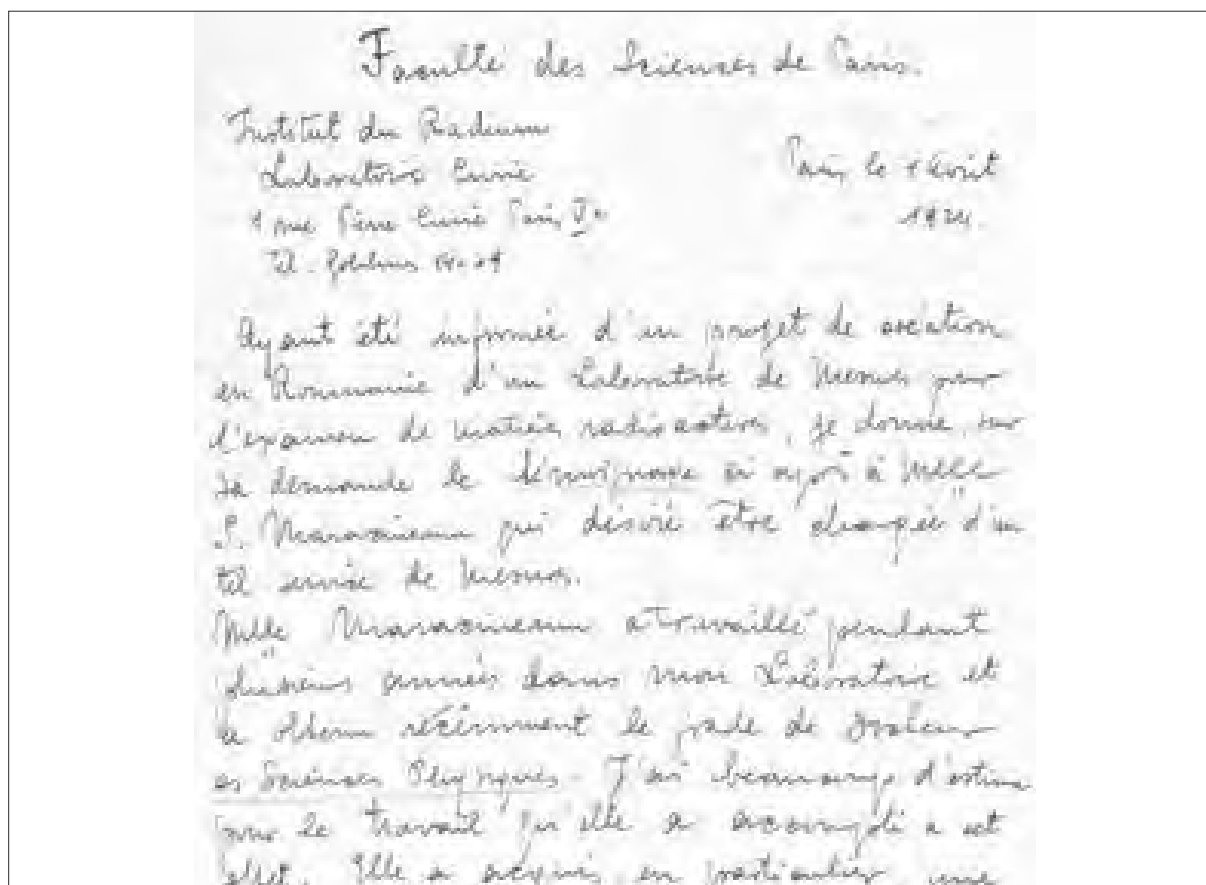 Faculté des Sciences de Paris.
Institut du Radium
Laboratoire Curie
1 rue Pierre Curie Paris Ve
Tel. Gobelins
Paris le Avril
Ayant été informée d'un projet de création
en Roumanie d'un Laboratoire de Mesures pour
l'examen de matières radioactives, je donne, sur
sa demande le témoignage ci après à Melle
S. Maracineanu qui désire être chargée d'un
tel service de mesures.
Melle Maracineanu a travaillé pendant
plusieurs années dans mon Laboratoire et
a obtenu récemment le grade de Docteur
es Sciences Physiques. J'ai beaucoup d'estime
pour le travail qu'elle a accompli a cet
effet. Elle a acquis, en particulier, une